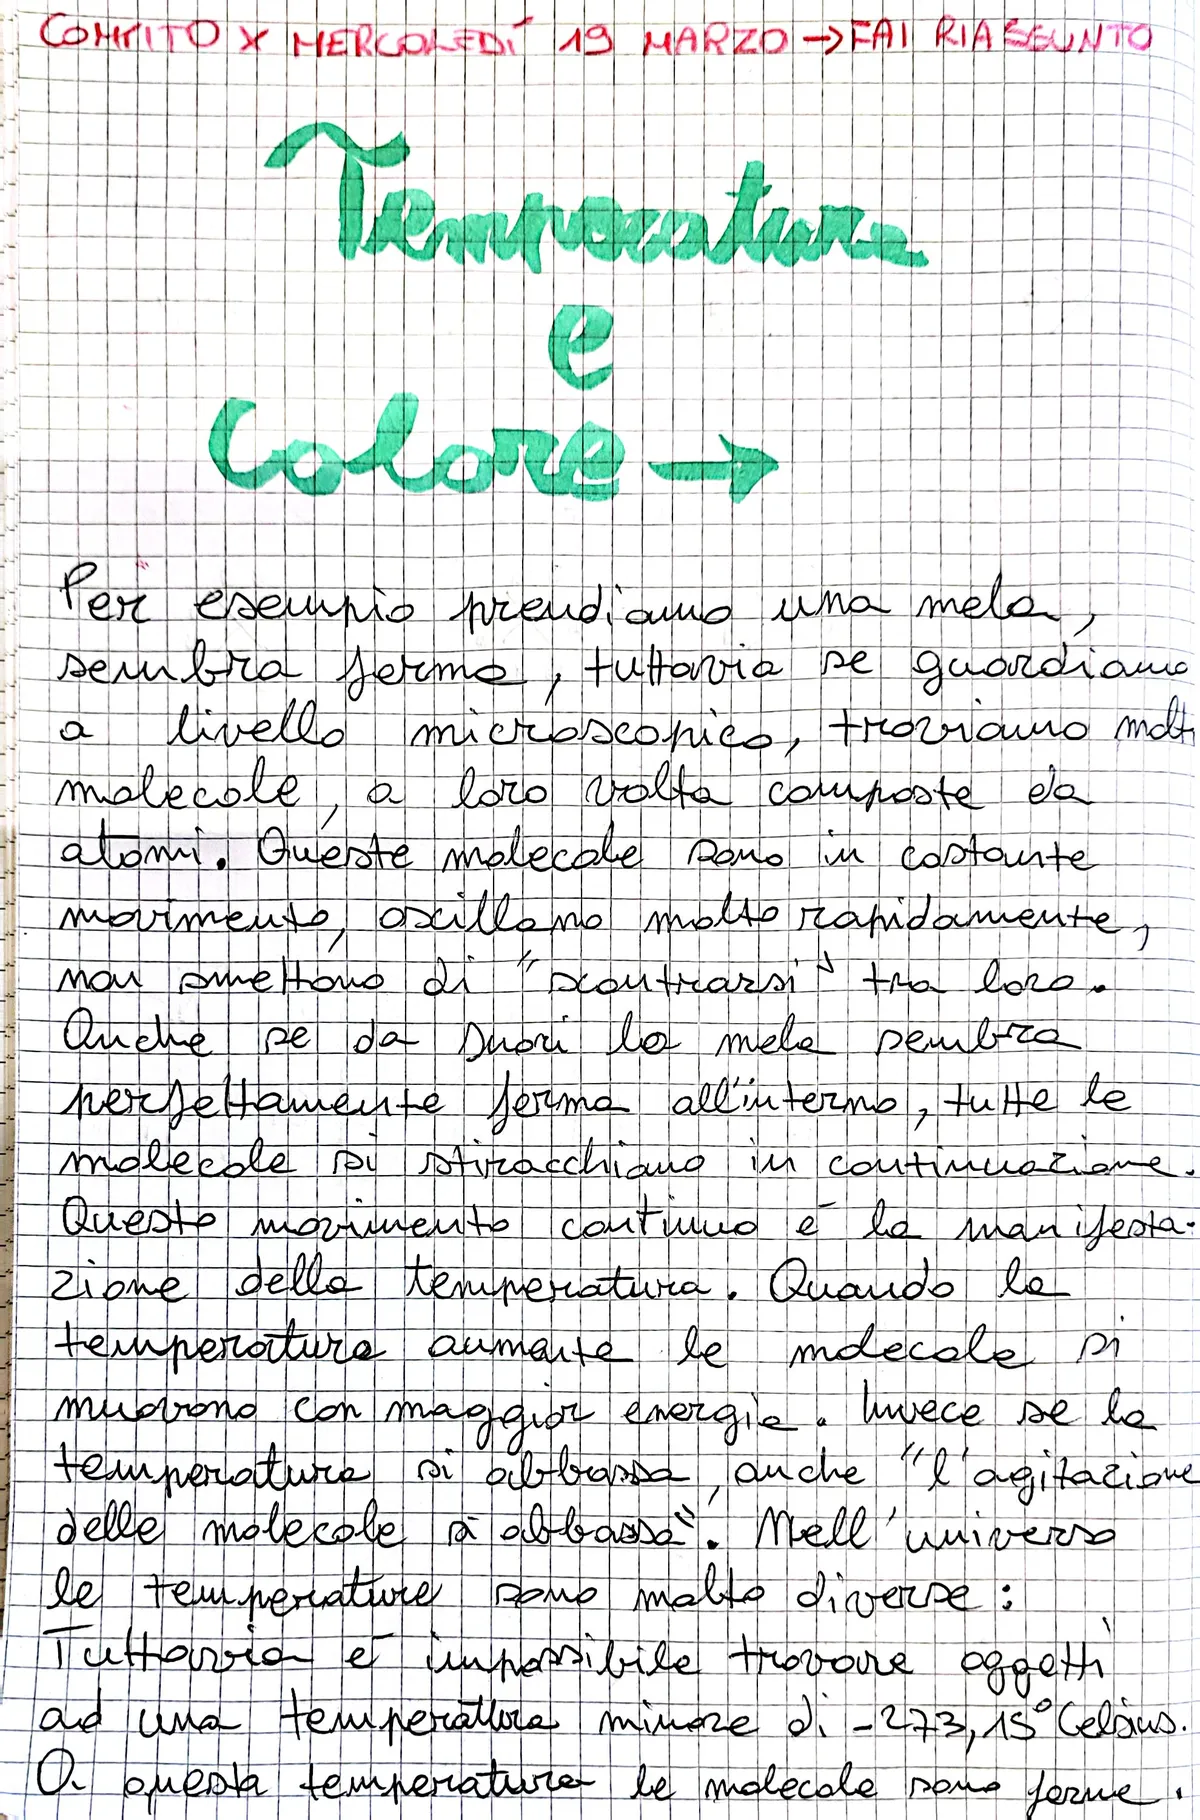 COMPITO X MERCOLEDÍ 19 MARZO → FAI RIASSUNTO
Temperatura
e
Calore →
Per esempio prendiamo una mela,
sembra ferma, tuttavia se guardiamo
a livello microscopico, troviamo molti
molecole, a loro volta composte da
atomi. Queste molecole sono in costante
movimento, oscillano molto rapidamente,
non smettono di "scontrarsi" tra loro.
Anche se da fuori la mela sembra
perfettamente ferma all'interno, tutte le
molecole si stiracchiano in continuazione.
Questo movimento continuo é la manifesta-
zione della temperatura. Quando la
temperatura aumenta le molecole si
muovono con maggior energia. Invece se la
temperatura si abbassa, anche "l'agitazione
delle molecole si abbassa". Nell'universo
le temperature sono molto diverse:
Tuttavia é impossibile trovare oggetti
ad una temperatura minore di -273,15° Celsius.
A questa temperatura le molecole sono ferme.